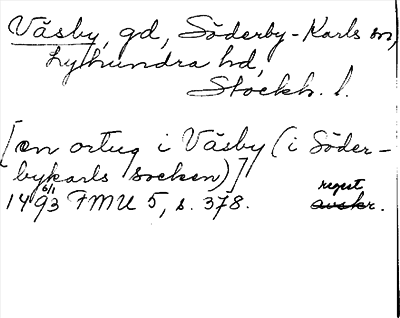 Väsby, gd, Söderby-Karls sn,
Lyhundra hd,
Stockh. l.
[en ortug i Väsby (i Söder-
bykarls socken)]
1493 6/1 FMU 5, s. 378. regest
avskr.